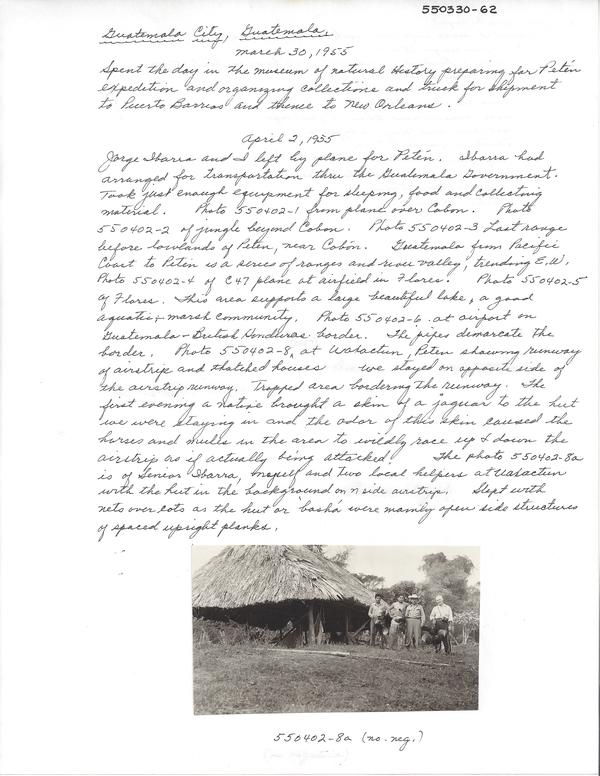 550330-62
Guatemala City, Guatemala.
March 30, 1955
Spent the day in the museum of natural History preparing for Petén
expedition and organizing collections and truck for shipment
to Puerto Barrios and thence to New Orleans.
April 2, 1955
Jorge Ibarra and I left by plane for Petén. Ibarra had
arranged for transportation thru the Guatemala Government.
Took just enough equipment for sleeping, food and collecting
material. Photo 550402-1 from plane over Cobon. Photo
550402-2 of jungle beyond Cobon. Photo 550402-3 Last range
before lowlands of Petén, near Cobón. Guatemala from Pacific
Coast to Petén is a series of ranges and river valley, trending E.W.
Photo 550402-4 of C47 plane at airfield in Flores. Photo 550402-5
of Flores. This area supports a large beautiful lake, a good
aquatic & marsh community. Photo 550402-6 at airport on
Guatemala-British Honduras border. The pipes dimarcate the
border. Photo 550402-8, at Uaxactun, Peten showing runway
of airstrip and thatched houses we stayed on opposite side of
the airstrip runway. Trapped area bordering the runway. The
first evening a native brought a skin of a jaguar to the hut
we were staying in and the odor of this skin caused the
horses and mules in the area to wildly race up & down the
airstrip as if actually being attacked. The photo 550402-8a
is of Senior Ibarra, myself and two local helpers at Uaxactun
with the hut in the background on n side airstrip. Slept with
nets over cots as the hut or 'bashá' were mainly open side structures
of spaced upright planks.
550402-8a (no. neg.)